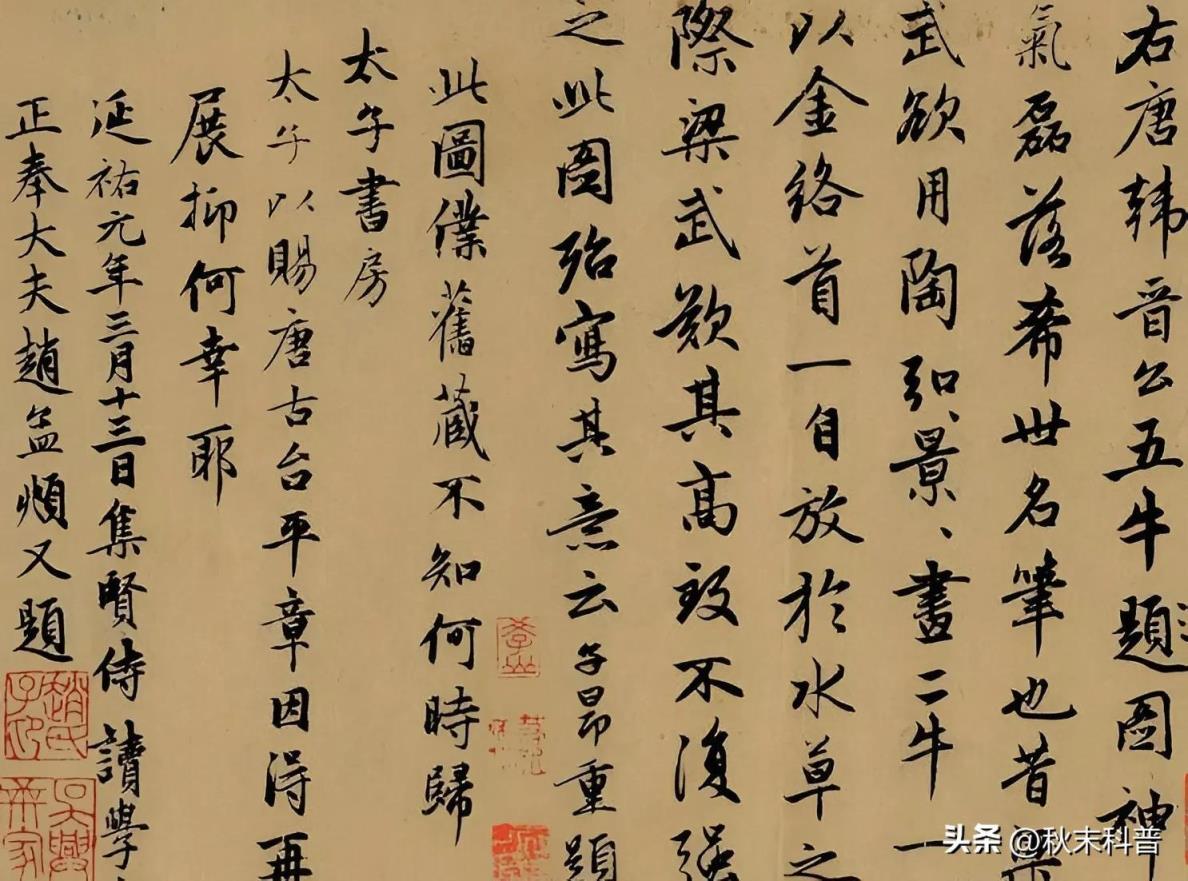 右唐韓晋公五牛題圖神
氣磊落希世名筆也昔梁
武欲用陶弘景、畫二牛一
以金絡首一自放於水草之
際梁武歎其高致不復强
之此圖殆寫其意云子昂重題
此圖僕舊藏不知何時歸
太子書房
太子以賜唐古台平章因得再
展抑何幸耶
延祐元年三月十三日集賢侍讀學
正奉大夫趙孟頫又題
趙氏子昂
头条 @秋末科普